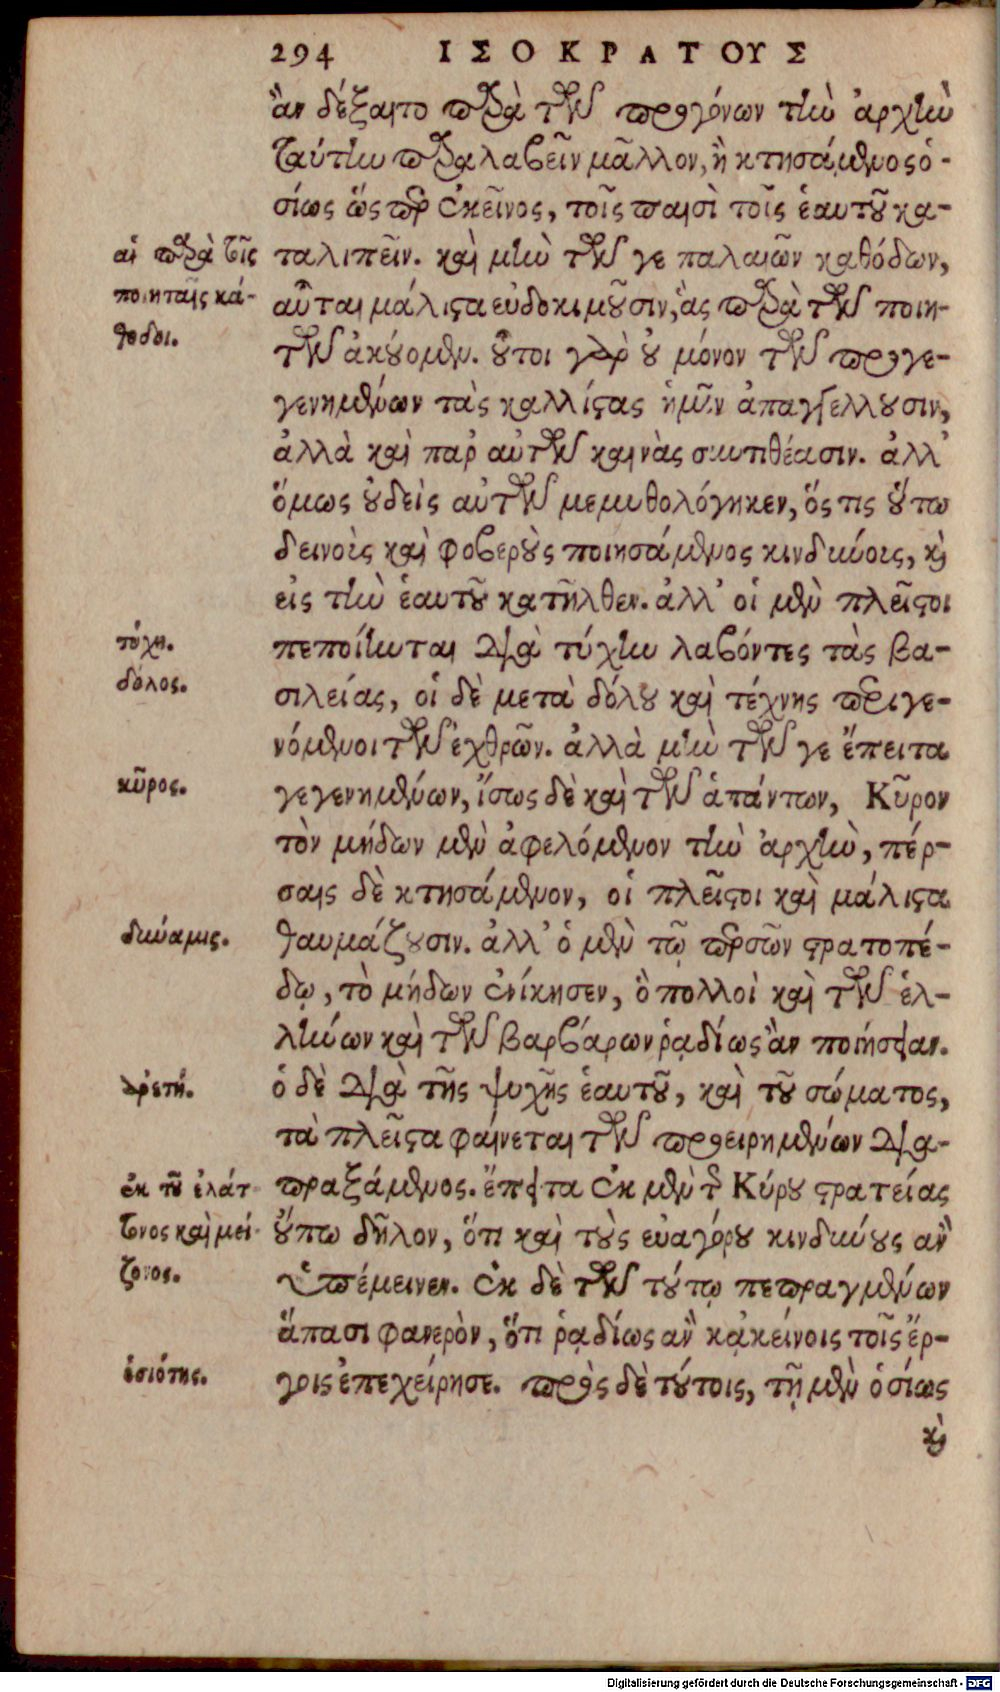 294 ΙΣΟΚΡΑΤΟΥΣ
ἂν δέξαιτο παρὰ τῶν προγόνων τὴν ἀρχὴν
ταύτην παραλαβεῖν μᾶλλον, ἢ κτησάμενος ὁ-
σίως ὥσπερ ἐκεῖνος, τοῖς παισὶ τοῖς ἑαυτοῦ κα-
αἱ παρὰ τοῖς
ταλιπεῖν. καὶ μὴν τῶν γε παλαιῶν καθόδων,
ποιηταῖς κά-
αὗται μάλιστα εὐδοκιμοῦσιν, ἃς παρὰ τῶν ποιη-
θοδοι.
τῶν ἀκούομεν. οὗτοι γὰρ οὐ μόνον τῶν προγε-
γενημένων τὰς καλλίστας ἡμῖν ἀπαγγέλλουσιν,
ἀλλὰ καὶ παρ' αὑτῶν καινὰς συντιθέασιν. ἀλλ'
ὅμως οὐδεὶς αὐτῶν μεμυθολόγηκεν, ὅς τις οὕτω
δεινοὺς καὶ φοβεροὺς ποιησάμενος κινδύνους, καὶ
εἰς τὴν ἑαυτοῦ κατῆλθεν. ἀλλ' οἱ μὲν πλεῖστοι
τύχη.
πεποίηνται διὰ τύχην λαβόντες τὰς βα-
δόλος.
σιλείας, οἱ δὲ μετὰ δόλου καὶ τέχνης περιγε-
νόμενοι τῶν ἐχθρῶν. ἀλλὰ μὴν τῶν γε ἔπειτα
κῦρος.
γεγενημένων, ἴσως δὲ καὶ τῶν ἁπάντων, Κῦρον
τὸν μήδων μὲν ἀφελόμενον τὴν ἀρχὴν, πέρ-
σαις δὲ κτησάμενον, οἱ πλεῖστοι καὶ μάλιστα
δύναμις.
θαυμάζουσιν. ἀλλ' ὁ μὲν τῷ περσῶν στρατοπέ-
δῳ, τὸ μήδων ἐνίκησεν, ὃ πολλοὶ καὶ τῶν ἑλ-
λήνων καὶ τῶν βαρβάρων ῥᾳδίως ἂν ποιήσειαν.
ἀρετή.
ὁ δὲ διὰ τῆς ψυχῆς ἑαυτοῦ, καὶ τοῦ σώματος,
τὰ πλεῖστα φαίνεται τῶν προειρημένων δια-
ἐκ τοῦ ἐλάτ-
πραξάμενος. ἔπειτα ἐκ μὲν τῆς Κύρου στρατείας
τονος καὶ μεί-
οὔπω δῆλον, ὅτι καὶ τοὺς εὐαγόρου κινδύνους ἂν
ζονος.
ὑπέμεινεν. ἐκ δὲ τῶν τούτῳ πεπραγμένων
ἅπασι φανερὸν, ὅτι ῥᾳδίως ἂν κἀκείνοις τοῖς ἔρ-
ὁσιότης.
γοις ἐπεχείρησε. πρὸς δὲ τούτοις, τῇ μὲν ὁσίως
καὶ
Digitalisierung gefördert durch die Deutsche Forschungsgemeinschaft - DFG